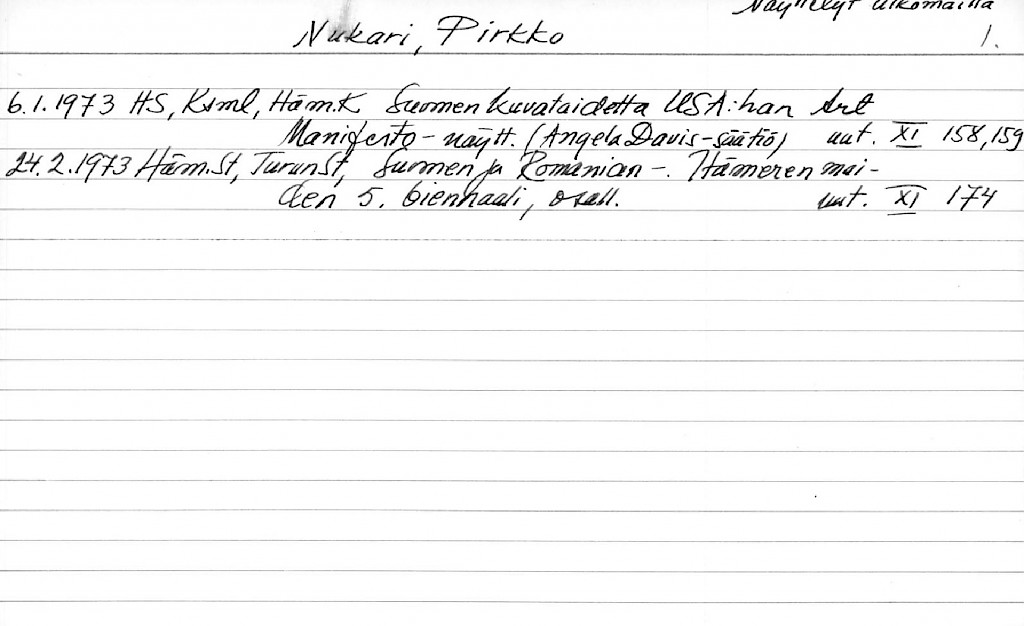 Näyttelyt ulkomailla
Nukari, Pirkko 1.
6.1.1973 HS, Ksml, Häm.K Suomen kuvataidetta USA:han Art
Manifesto-näytt. (Angela Davis-säätiö) uut. XI 158,159
24.2.1973 Häm.St, TurunSt, Suomen ja Romanian -. Itämeren mai-
den 5. biennaali, osall. uut. XI 174